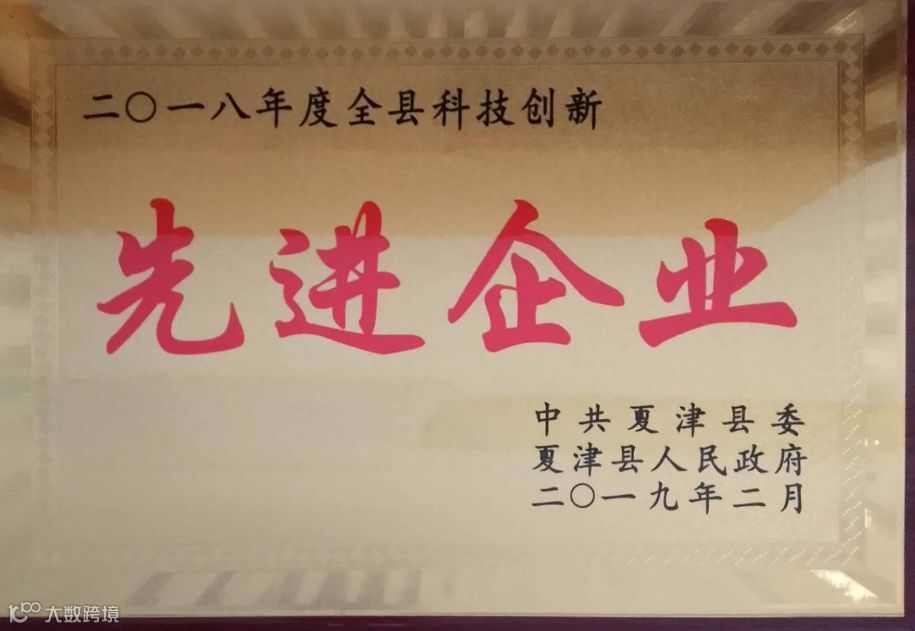 二〇一八年度全县科技创新
先进企业
中共夏津县委
夏津县人民政府
二〇一九年二月
大数跨境